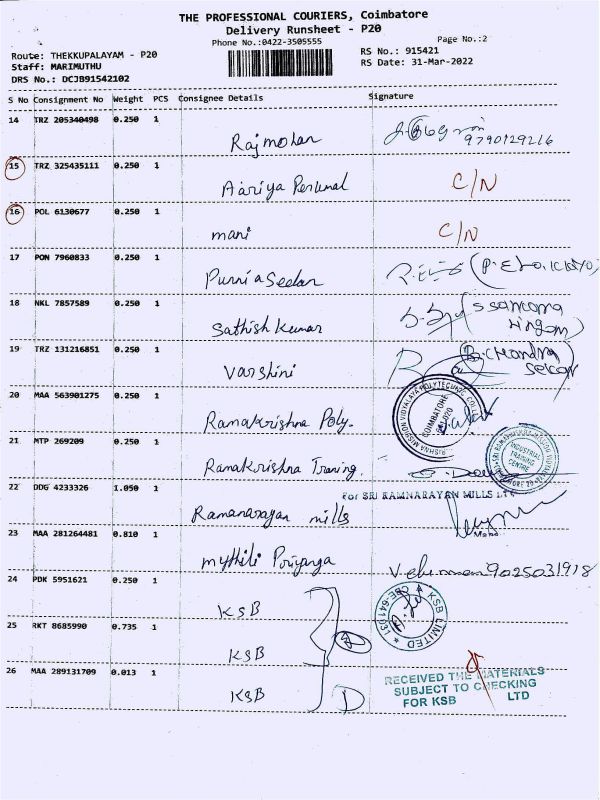 THE PROFESSIONAL COURIERS, Coimbatore
Delivery Runsheet - P20
Phone No.:0422-3505555
Page No.:2
Route: THEKKUPALAYAM - P20
RS No.: 915421
Staff: MARIMUTHU
RS Date: 31-Mar-2022
DRS No.: DCJB91542102
S No Consignment No Weight PCS Consignee Details Signature
14 TRZ 205340498 0.250 1
Rajmohan 9790129216
15 TRZ 325435111 0.250 1
Aariya Perumal C/N
16 POL 6130677 0.250 1
mani C/N
17 PON 7960833 0.250 1
Purnia Seelan
18 NKL 7857589 0.250 1
Sathish Kumar
19 TRZ 131216851 0.250 1
Varshini
20 MAA 563901275 0.250 1
Ramakrishna Poly.
COIMBATORE
21 MTP 269209 0.250 1
Ramakrishna Traning.
INDUSTRIAL
TRAINING
CENTRE
22 DDG 4233326 1.050 1
For SRI RAMNARAYAN MILLS LTD
Ramanarayan mills
23 MAA 281264481 0.810 1
mythili Priyanga 9025031918
24 PDK 5951621 0.250 1
KSB
KSB LIMITED
25 RKT 8685990 0.735 1
KSB
26 MAA 289131709 0.013 1
KSB D
RECEIVED THE MATERIALS
SUBJECT TO CHECKING
FOR KSB LTD